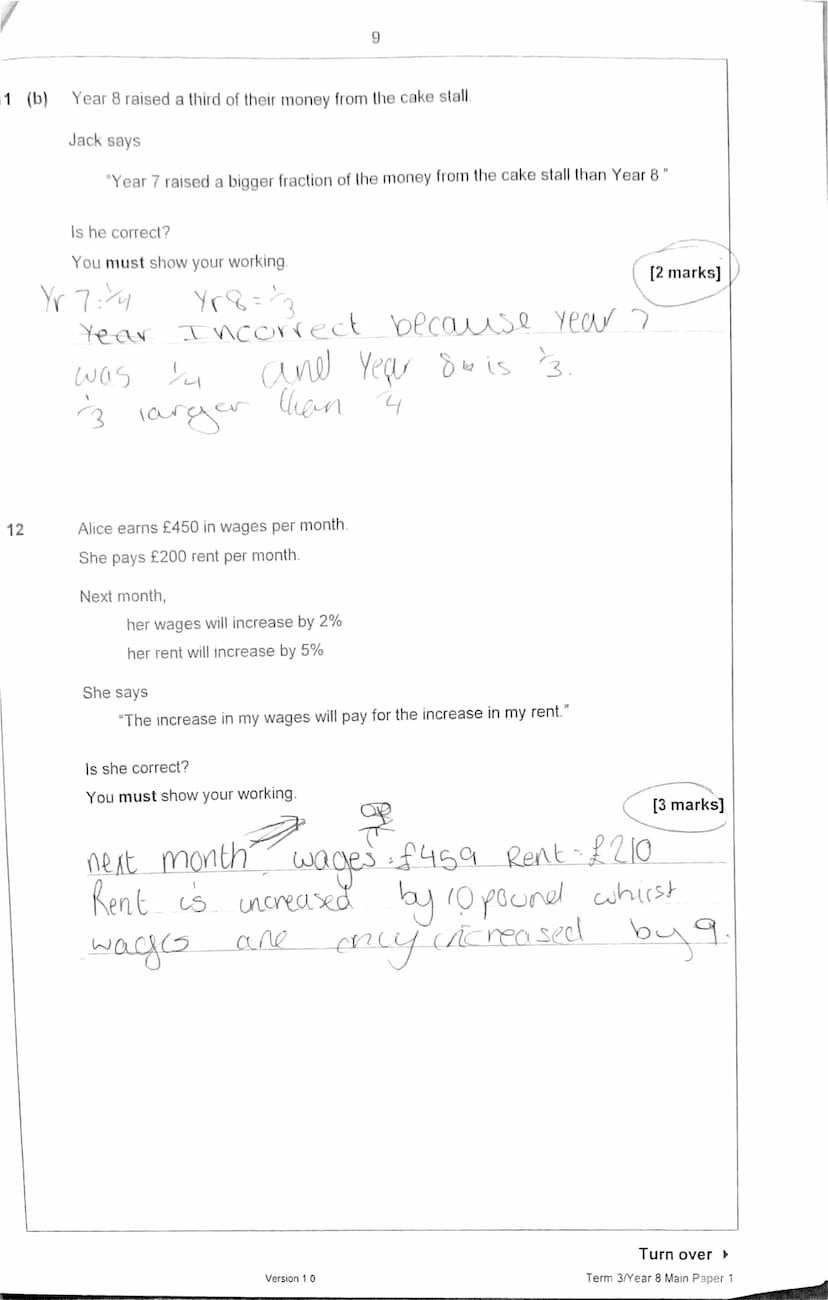 9
1 (b) Year 8 raised a third of their money from the cake stall
Jack says
"Year 7 raised a bigger fraction of the money from the cake stall than Year 8 "
Is he correct?
You must show your working.
[2 marks]
Yr 7: 1/4 Yr 8 = 1/3
Year Incorrect because year 7
was 1/4 and Year 8 is 1/3.
1/3 larger than 1/4
12 Alice earns £450 in wages per month.
She pays £200 rent per month.
Next month,
her wages will increase by 2%
her rent will increase by 5%
She says
"The increase in my wages will pay for the increase in my rent."
Is she correct?
You must show your working.
[3 marks]
next month wages : £459 Rent = £210
Rent is increased by 10 pound whirst
wages are only increased by 9.
Turn over
Version 1 0
Term 3/Year 8 Main Paper 1